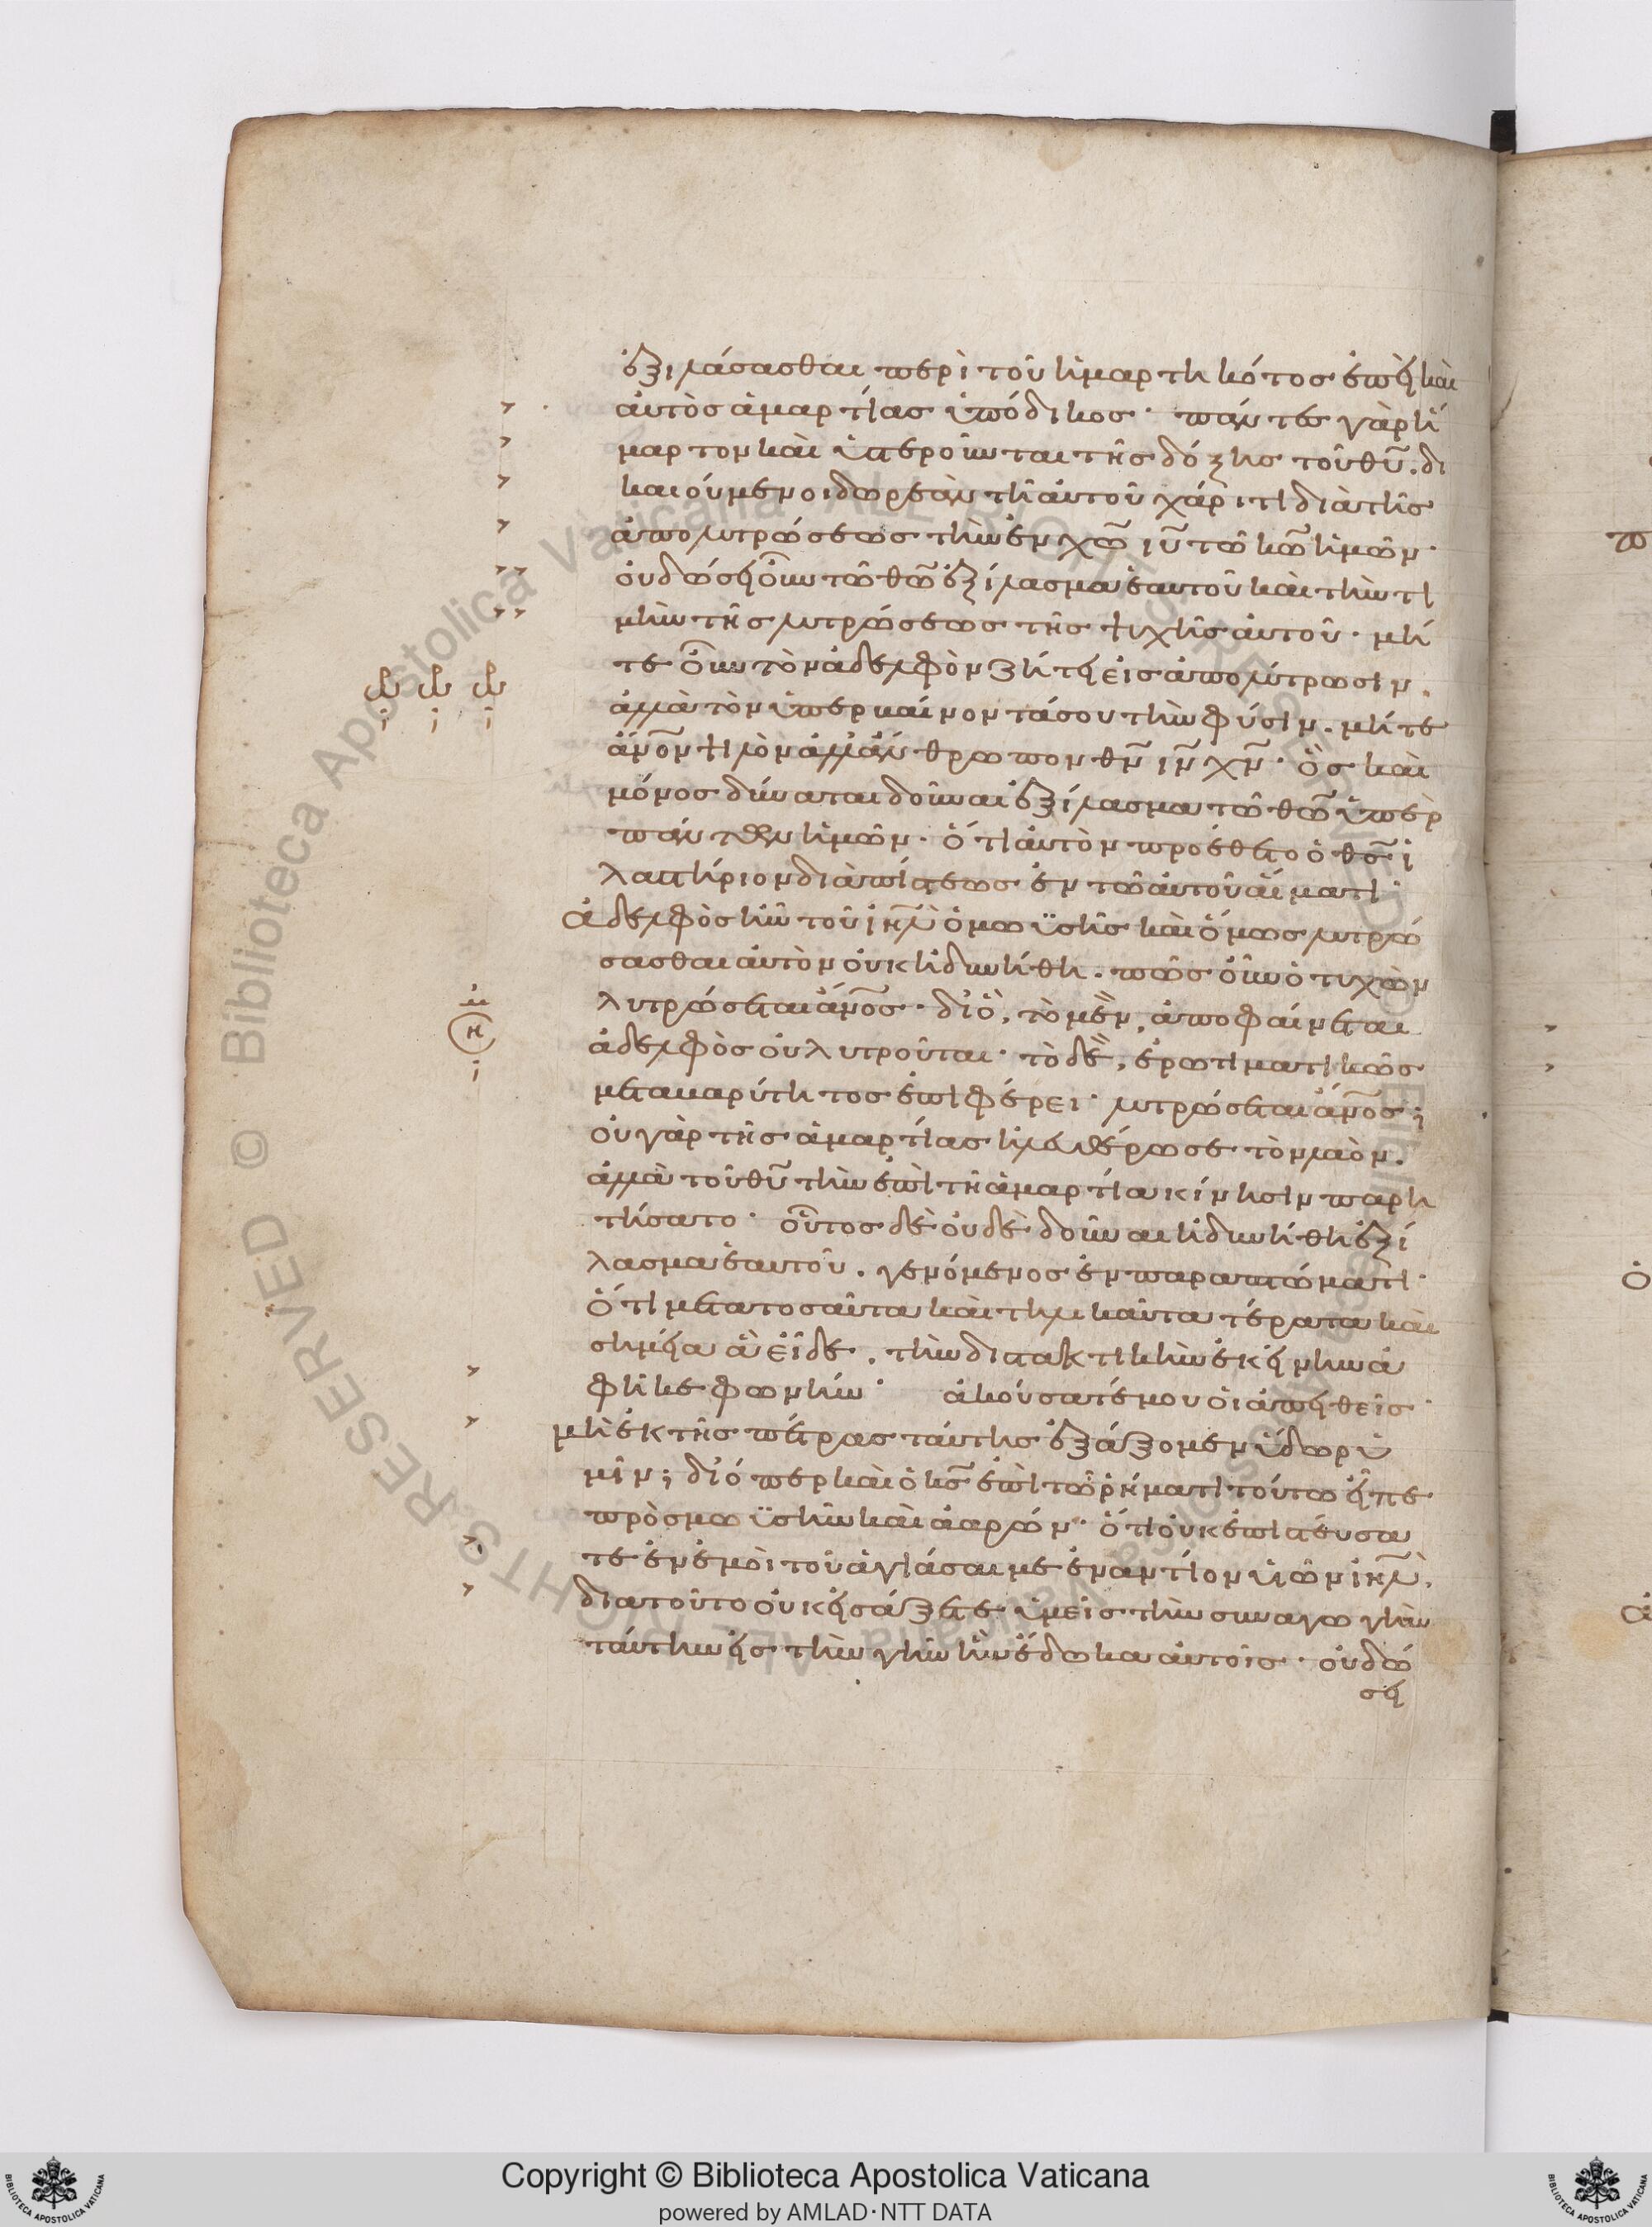 ἐξιλάσασθαι περὶ τοῦ ἡμαρτηκότος ἐπεὶ καὶ
αὐτὸς ἁμαρτίας ὑπόδικος· πάντες γὰρ ἥ
μαρτον καὶ ὑστεροῦνται τῆς δόξης τοῦ θυ̅. δι
καιούμενοι δωρεὰν τῆ αὐτοῦ χάριτι διὰ τῆς
ἀπολυτρώσεως τὴν ἐν χω̅ ιυ̅ τῶ κω̅ ἡμῶν·
οὐ δώσει οὖν τῶ θω̅ ἐξίλασμα ἑαυτοῦ καὶ τὴν τι
μὴν τῆς λυτρώσεως τῆς ψυχῆς αὐτοῦ· μή
τε οὖν τὸν ἀδελφὸν ζήτει εἰς ἀπολύτρωσιν.
ἀλλὰ τὸν ὑπερβαίνοντά σου τὴν φύσιν. μήτε
ἄνο̅ν ψιλὸν ἀλλ' ἄνθρωπον θν̅ ιν̅ χν̅· ὃς καὶ
μόνος δύναται δοῦναι ἐξίλασμα τῶ θω̅ ὑπὲρ
πάντων ἡμῶν· ὅτι αὐτὸν προέθετο ὁ θς̅ ἱ
λαστήριον διὰ πίστεως ἐν τῶ αὐτοῦ αἵματι·
ἀδελφὸς ἦν τοῦ ιηλ̅ ὁ μωϋσῆς καὶ ὅμως λυτρώ
σασθαι αὐτὸν οὐκ ἠδυνήθη. πῶς οὖν ὁ τυχὼν
λυτρώσεται ἄνο̅ς· διὸ, τὸ μὲν, ἀποφαίνεται
ἀδελφὸς οὐ λυτροῦται· τὸ δὲ, ἐρωτιματικῶς
μετα βαρύτητος ἐπιφέρει· λυτρώσεται ἄνο̅ς;
οὐ γὰρ τῆς ἁμαρτίας ἠλευθέρωσε τὸν λαὸν.
ἀλλὰ τοῦ θυ̅ τὴν ἐπὶ τῆ ἁμαρτία κίνησιν παρη
τήσατο· οὗτος δὲ οὐδὲ δοῦναι ἠδυνήθη ἐξί
λασμα ἑαυτοῦ. γενόμενος ἐν παραπτώματι·
ὅτι μετα τοσαῦτα καὶ τηλικαῦτα τέρατα καὶ
σημεῖα ἃ εἶδε. τὴν διστακτικὴν ἐκείνην ἀ
φῆκε φωνήν· ἀκούσατέ μου οἱ ἀπειθεῖς·
μὴ ἐκ τῆς πέτρας ταύτης ἐξάξομεν ὕδωρ ὑ
μῖν; διόπερ καὶ ὁ κς̅ ἐπὶ τῶ ρήματι τούτω εἶπε
πρὸς μωϋσῆν καὶ ἀαρών· ὅτι οὐκ ἐπιστεύσα
τε ἐν ἐμοὶ τοῦ ἁγιάσαι με ἐναντίον υἱῶν ιηλ̅.
διατοῦτο οὐκ εἰσάξετε ὑμεῖς τὴν συναγωγὴν
ταύτην εἰς τὴν γῆν ἣν ἔδωκα αὐτοῖς· οὐ δώ
σει
Copyright © Biblioteca Apostolica Vaticana
powered by AMLAD·NTT DATA